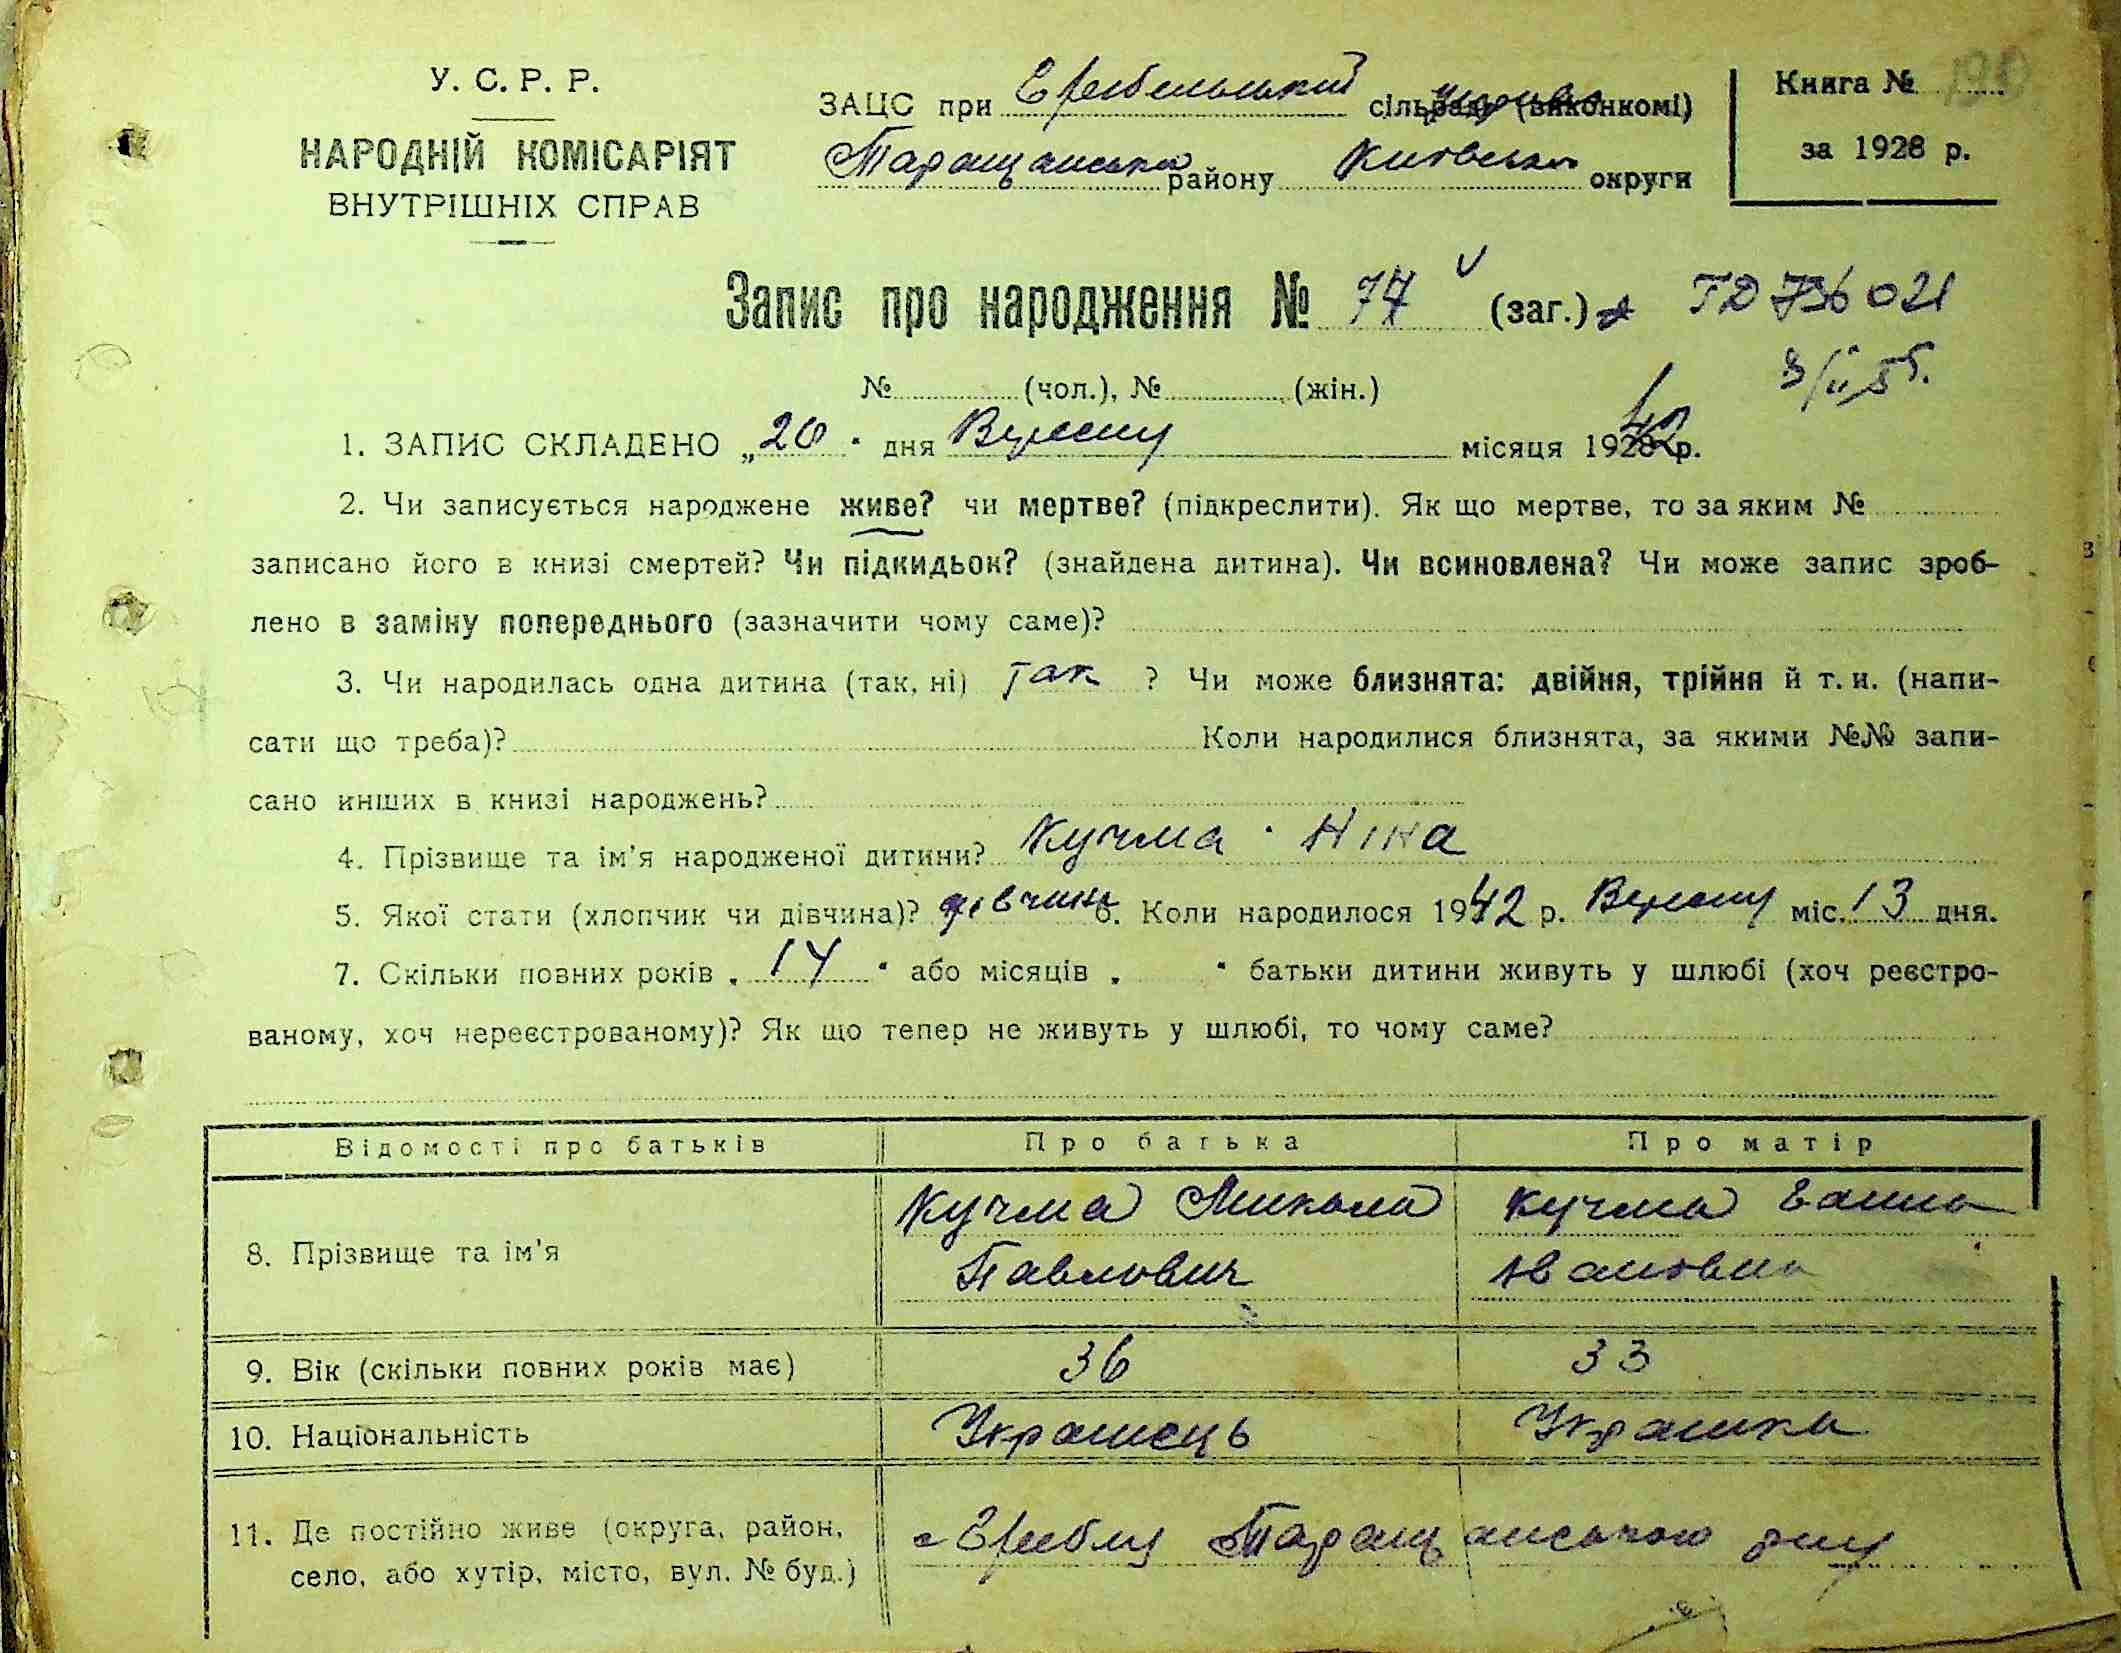 У. С. Р. Р.
НАРОДНІЙ КОМІСАРІЯТ
ВНУТРІШНІХ СПРАВ
ЗАЦС при Гребельський сільраді (виконкомі)
Таращанська району Київська округи
Книга №
за 1928 р.
Запис про народження № 74 (заг.) ГД 736021
3/II 55.
№ (чол.), № (жін.)
1. ЗАПИС СКЛАДЕНО „20" дня Вересня місяця 1942 р.
2. Чи записується народжене живе? чи мертве? (підкреслити). Як що мертве, то за яким №
записано його в книзі смертей? Чи підкидьок? (знайдена дитина). Чи всиновлена? Чи може запис зроб-
лено в заміну попереднього (зазначити чому саме)?
3. Чи народилась одна дитина (так, ні) так ? Чи може близнята: двійня, трійня й т. и. (напи-
сати що треба)? Коли народилися близнята, за якими №№ запи-
сано инших в книзі народжень?
4. Прізвище та ім'я народженої дитини? Кучма Ніна
5. Якої стати (хлопчик чи дівчина)? дівчина 6. Коли народилося 1942 р. Вересня міс. 13 дня.
7. Скільки повних років „14" або місяців „ " батьки дитини живуть у шлюбі (хоч реєстро-
ваному, хоч нереєстрованому)? Як що тепер не живуть у шлюбі, то чому саме?
Відомості про батьків Про батька Про матір
8. Прізвище та ім'я Кучма Микола Павлович Кучма Ганна Івановна
9. Вік (скільки повних років має) 36 33
10. Національність Українець Українка
11. Де постійно живе (округа, район, село, або хутір, місто, вул. № буд.) с Гребля Таращанського р-ну